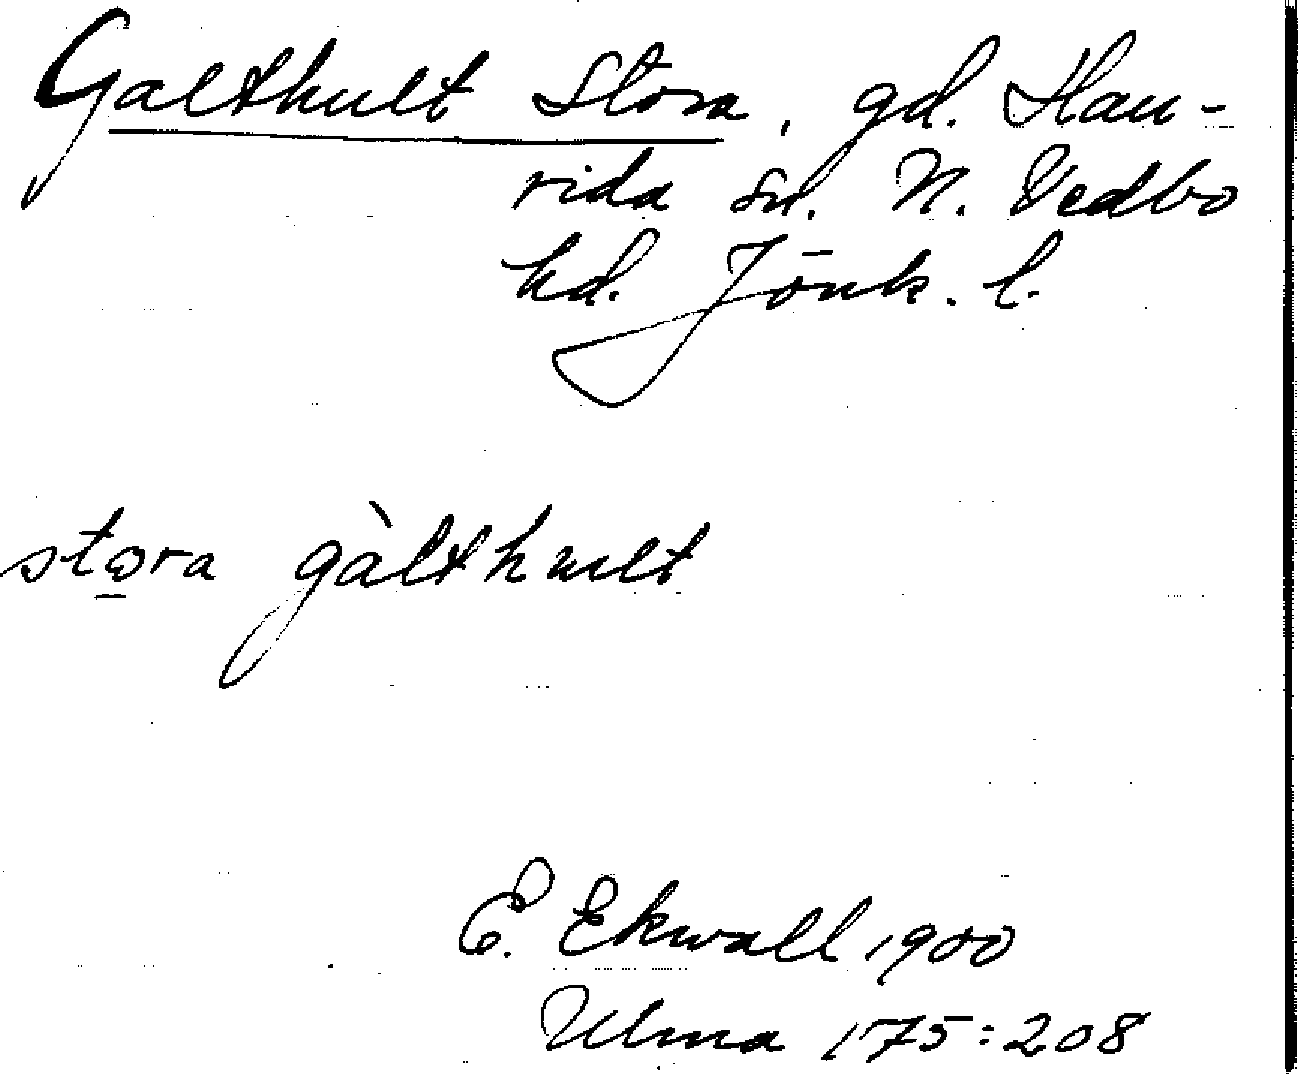 Galthult Stora, gd. Hau-
rida sn. N. Vedbo
hd. Jönk. l.
stora gàlthult
E. Ekwall 1900
Ulma 175:208